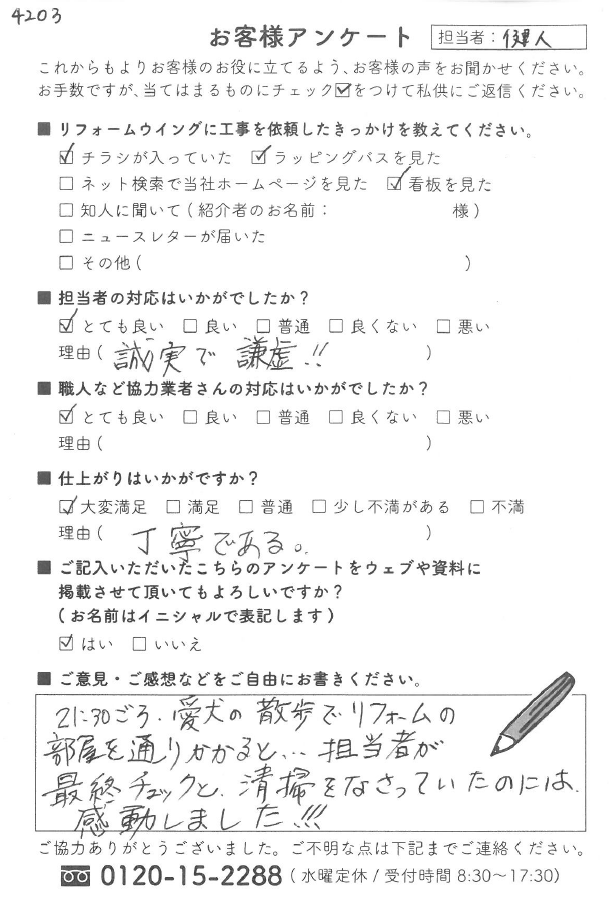 4203
お客様アンケート 担当者：健人
これからもよりお客様のお役に立てるよう、お客様の声をお聞かせください。
お手数ですが、当てはまるものにチェック☑をつけて私供にご返信ください。
■ リフォームウイングに工事を依頼したきっかけを教えてください。
☑ チラシが入っていた ☑ ラッピングバスを見た
□ ネット検索で当社ホームページを見た ☑ 看板を見た
□ 知人に聞いて（紹介者のお名前： 様）
□ ニュースレターが届いた
□ その他（ ）
■ 担当者の対応はいかがでしたか？
☑ とても良い □ 良い □ 普通 □ 良くない □ 悪い
理由（ 誠実で 謙虚!! ）
■ 職人など協力業者さんの対応はいかがでしたか？
☑ とても良い □ 良い □ 普通 □ 良くない □ 悪い
理由（ ）
■ 仕上がりはいかがですか？
☑ 大変満足 □ 満足 □ 普通 □ 少し不満がある □ 不満
理由（ 丁寧である。 ）
■ ご記入いただいたこちらのアンケートをウェブや資料に
掲載させて頂いてもよろしいですか？
（お名前はイニシャルで表記します）
☑ はい □ いいえ
■ ご意見・ご感想などをご自由にお書きください。
21:30ごろ、愛犬の散歩でリフォームの
部屋を通りかかると... 担当者が
最終チェックと、清掃をなさっていたのには、
感動しました!!!
ご協力ありがとうございました。ご不明な点は下記までご連絡ください。
0120-15-2288（水曜定休 / 受付時間 8:30～17:30）